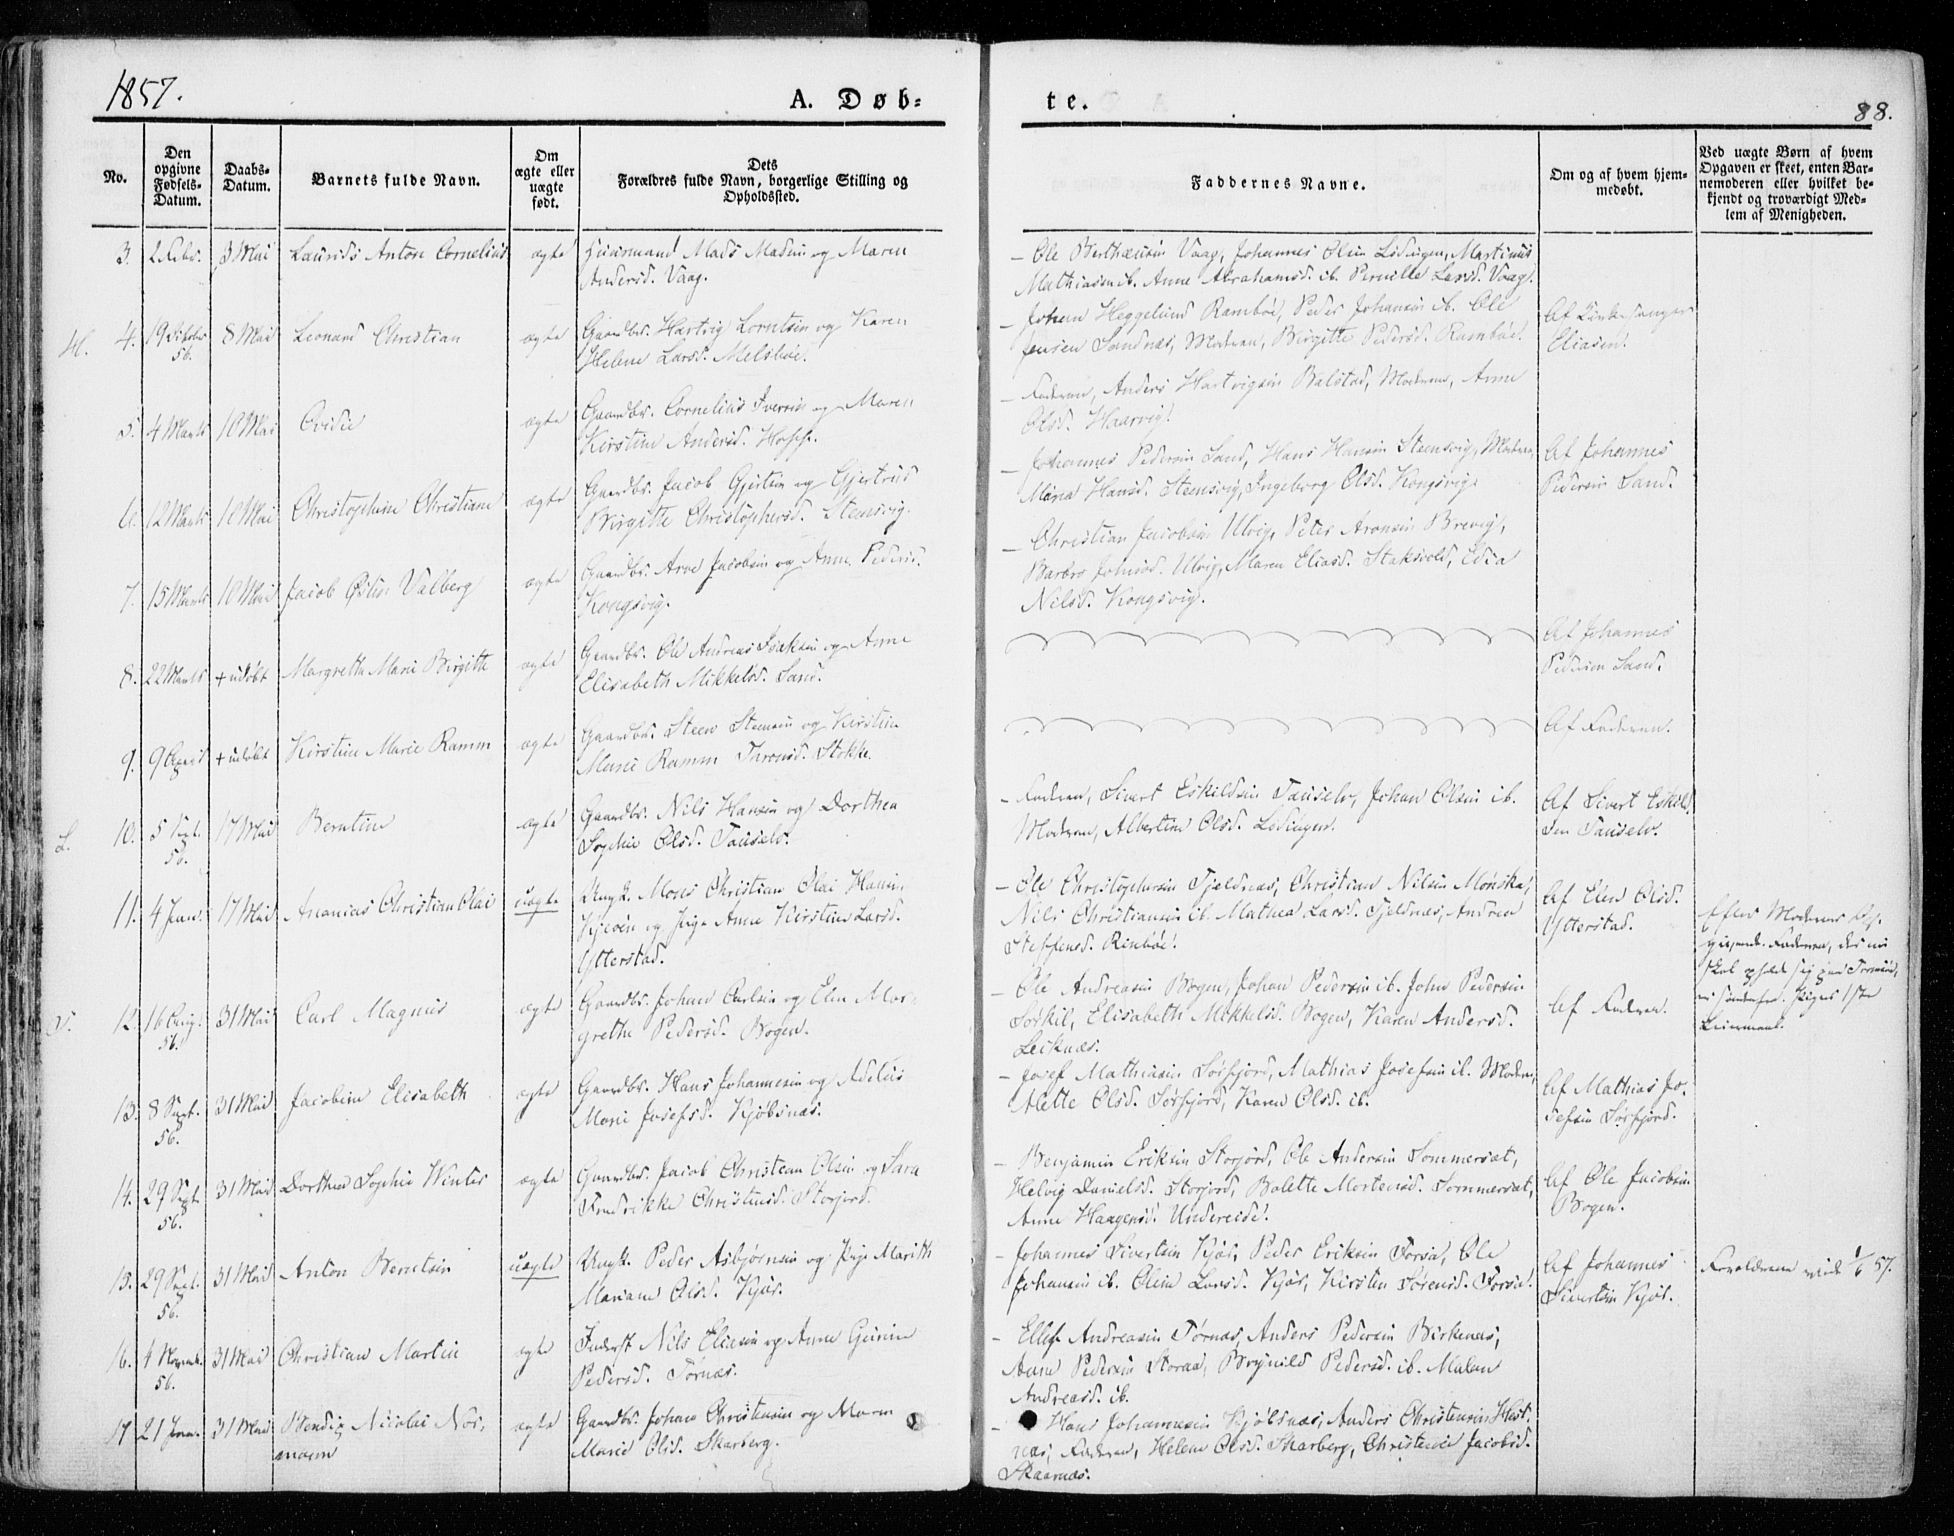 1857.
A. Døb-
te.
88.
No.
Den
opgivne
Fødsels-
Datum.
Daabs-
Datum.
Barnets fulde Navn.
Om
ægte eller
uægte
født.
Dets
Forældres fulde Navn, borgerlige Stilling og
Opholdssted.
Faddernes Navne.
Om og af hvem hjem-
medøbt.
Ved uægte Børn af hvem
Opgaven er skeet, enten Bar-
nemoderen eller hvilket be-
kjendt og troværdigt Med-
lem af Menigheden.
3. 2 Febr. 3 Mai Laurids Anton Cornelius ægte Huusmand Mads Madsen og Maren
Andersd. Vaag.
- Ole Berthæusen Vaag, Johannes Olsen Lødingen, Martinus
Mathiasen ib. Anne Abrahamsd. ib. Pernille Larsd. Vaag.
H. 4. 19 56. 8 Mai Leonard Christian ægte Gaardbr. Hartvig Lorntsen og Karen
Helene Larsd. Melsbøe.
- Johan Heggelund Ramböe, Peder Johansen ib. Ole
Jensen Sandnæs, Moderen, Birgitte Pedersd. Ramböe.
Af Kirkesanger
Eliasen.
5. 4 Marts 10 Mai Ovidie ægte Gaardbr. Cornelius Iversen og Maren
Kirstine Andersd.
- Faderen, Anders Hartvigsen Balstad, Moderen, Anne
Olsd. Haarvig.
6. 12 Marts 10 Mai Christophine Christiane ægte Gaardbr. Jacob Gjertsen og Gjertrud
Birgitte Christophersd. Steensvig.
- Johannes Pedersen Sand, Hans Hansen Steensvig, Moderen,
Maria Hansd. Steensvig, Ingeborg Olsd. Kongsvig.
Af Johannes
Pedersen Sand.
7. 15 Marts 10 Mai Jacob Østen Valberg ægte Gaardbr. Arve Jacobsen og Anne Pedersd.
Kongsvig.
- Christian Jacobsen Ulvig, Peter Aronsen Brevig,
Barbro Johnsd. Ulvig, Maren Eliasd. Stakvold, Edia
Nilsd. Kongsvig.
8. 22 Marts + udøbt Margretha Marie Birgitte ægte Gaardbr. Ole Andreas Isaksen og Anne
Elisabeth Mikkelsd. Sand.
Af Johannes
Pedersen Sand.
9. 9 April + udøbt Kirstine Marie Ramm ægte Gaardbr. Steen Steensen og Kirstine
Marie Ramm Thronsd. Stokke.
Af Faderen.
L. 10. 5 Sept. 56. 17 Mai Berntine ægte Gaardbr. Nils Hansen og Dorthea
Sophie Olsd. Tauselv.
- Faderen, Sivert Eskildsen Tauselv, Johan Olsen ib.
Moderen, Albertine Olsd. Lødingen.
Af Sivert Eskild-
sen Tauselv.
11. 4 Jan. 17 Mai Ananias Christian Olai uægte Ungk. Mons Christian Olai Hansen
Kjeøen og Pige Anne Kirstine Larsd.
Ytterstad.
- Ole Christophersen Tjeldnæs, Christian Nilsen
Nils Christiansen ib. Mathea Larsd. Tjeldnæs, Andrea
Steffensd. Rinbøe.
Af Elen Olsd.
Ytterstad.
Efter Moderens Op-
givende. Faderen, der nu
skal opholde sig paa Tromsøe,
er Piges 1ste
Leiermaal.
12. 16 Aug. 56. 31 Mai Carl Magnus ægte Gaardbr. Johan Carlsen og Elen Mar-
grethe Pedersd. Bogen.
- Ole Andreasen Bogen, Johan Pedersen ib. John Pedersen
Sørkil, Elisabeth Mikkelsd. Bogen, Karen Andersd.
Leiknæs.
Af Faderen.
13. 8 Sept. 56. 31 Mai Jacobine Elisabeth ægte Gaardbr. Hans Johannesen og Adelus
Marie Josefsd. Kjøbsnæs.
- Josef Mathiasen Sørfjord, Mathias Josefsen ib. Moderen,
Mette Olsd. Sørfjord, Karen Olsd. ib.
Af Mathias Jo-
sefsen Sørfjord.
14. 29 Sept. 56. 31 Mai Dorthea Sophie Winter ægte Gaardbr. Jacob Christian Olsen og Sara
Fredrikke Christensd. Storjord.
- Benjamin Eriksen Storjord, Ole Andersen Sommersæt,
Helvig Danielsd. Storjord, Balette Mortensd. Sommersæt,
Anne Haagensd. Undereidet.
Af Ole Jacobsen
Bogen.
15. 29 Sept. 56. 31 Mai Anton Berntsen uægte Ungk. Peder Asbjørnsen og Pige Marith
Mariane Olsd. Kjær.
- Johannes Sivertsen Kjær, Peder Eriksen Forsa, Ole
Johansen ib. Oline Larsd. Kjær, Kirsten Sørensd. Forsa.
Af Johannes
Sivertsen Kjær.
Forældrene viede 1/6 57.
16. 4 Novemb. 56. 31 Mai Christian Martin ægte Inderst Nils Eliasen og Anne
Pedersd. Tørnæs.
- Ellef Andreasen Tørnæs, Anders Pedersen Birkenæs,
Arne Pedersen Storaa, Brynild Pedersd. ib. Malene
Andreasd. ib.
17 21 Jan. 31 Mai Bendix Nicolai Nor-
mann ægte Gaardbr. Johan Christensen og Maren
Marie Olsd. Skarberg.
- Hans Johannesen Kjøbsnæs, Anders Christensen Hest-
næs, Faderen, Helene Olsd. Skarberg, Christence Jacobsd.
Skaarnæs.